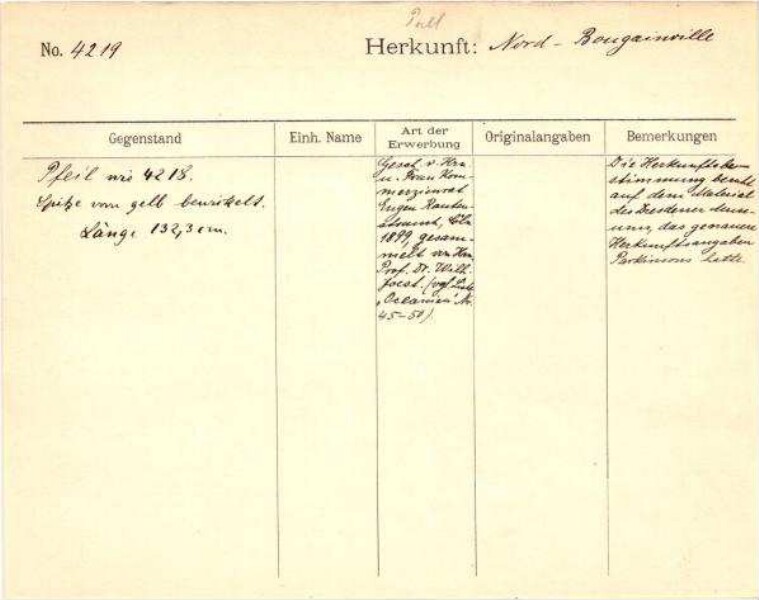 No. 4219
Herkunft: Nord-Bougainville
Gegenstand
Einh. Name
Art der Erwerbung
Originalangaben
Bemerkungen
Pfeil wie 4218.
Spitze von gelb bewickelt.
Länge 132,3 cm.
Gesch. v. Hrn
u. Frau Kom-
merzienrat
Eugen Rauten-
strauch, Cöln
1899, gesam-
melt von Hrn
Prof. Dr. Wilh.
Joest. (vgl. Liste
"Oceanien" Nr.
45-50).
Die Herkunftsbe-
stimmung beruht
auf dem Material
des Dresdener Muse-
ums, das genauere
Herkunftsangaben
Parkinsons hatte